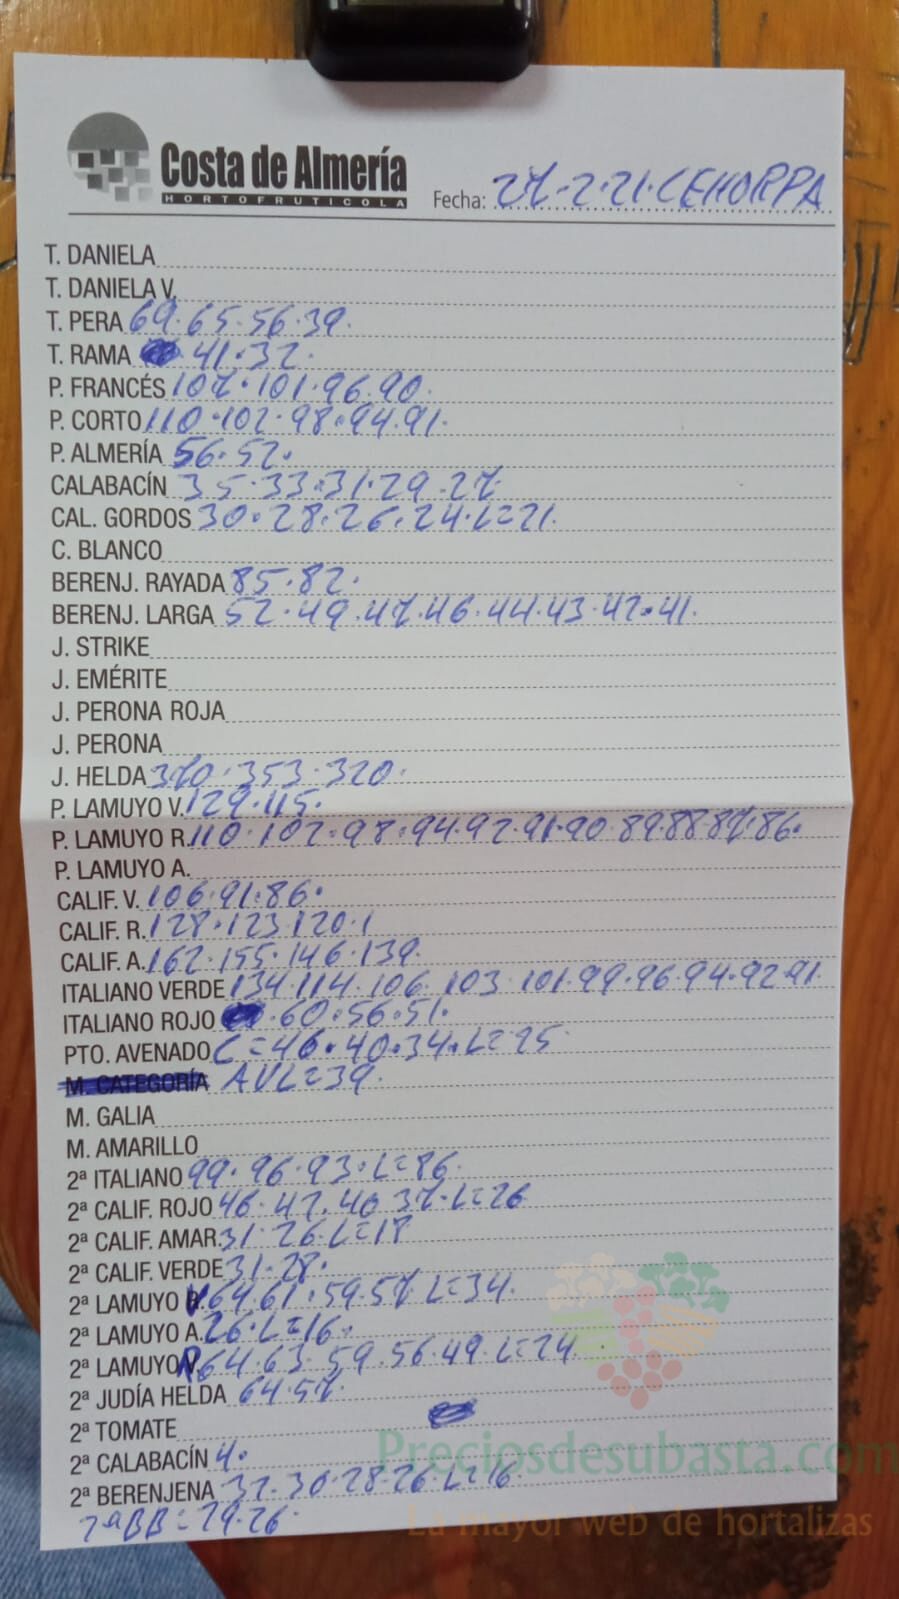 Costa de Almería
HORTOFRUTICOLA
Fecha: 27-2-21·CEHORPA
T. DANIELA
T. DANIELA V.
T. PERA 69·65·56·39·
T. RAMA 41·32·
P. FRANCÉS 107·101·96·90·
P. CORTO 110·102·98·94·91·
P. ALMERÍA 56·52·
CALABACÍN 35·33·31·29·27
CAL. GORDOS 30·28·26·24·L=21·
C. BLANCO
BERENJ. RAYADA 85·82·
BERENJ. LARGA 52·49·47·46·44·43·42·41·
J. STRIKE
J. EMÉRITE
J. PERONA ROJA
J. PERONA
J. HELDA 370·353·320·
P. LAMUYO V. 129·115·
P. LAMUYO R. 110·102·98·94·92·91·90·89·88·87·86·
P. LAMUYO A.
CALIF. V. 106·91·86·
CALIF. R. 128·123·120·1
CALIF. A. 162·155·146·139·
ITALIANO VERDE 134·114·106·103·101·99·96·94·92·91
ITALIANO ROJO ·60·56·51·
PTO. AVENADO C=46·40·34·L=25·
M. CATEGORÍA AVL=39·
M. GALIA
M. AMARILLO
2ª ITALIANO 99·96·93·L=86·
2ª CALIF. ROJO 46·42·40 37·L=26
2ª CALIF. AMAR. 31·26·L=18
2ª CALIF. VERDE 31·28·
2ª LAMUYO V 64·61·59·57 L=34·
2ª LAMUYO A. 26·L=16·
2ª LAMUYO R 64·63·59·56·49·L=24
2ª JUDÍA HELDA 64·57·
2ª TOMATE
2ª CALABACÍN 4·
2ª BERENJENA 32·30·28·26·L=16·
2ªBB=29·26·
Preciosdesubasta.com
La mayor web de hortalizas